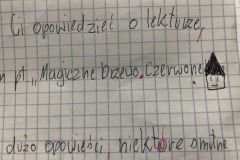 Ci opowiedzieć o lekturze,
pt „Magiczne Drzewo. Czerwone
dużo opowieści niektóre smutne